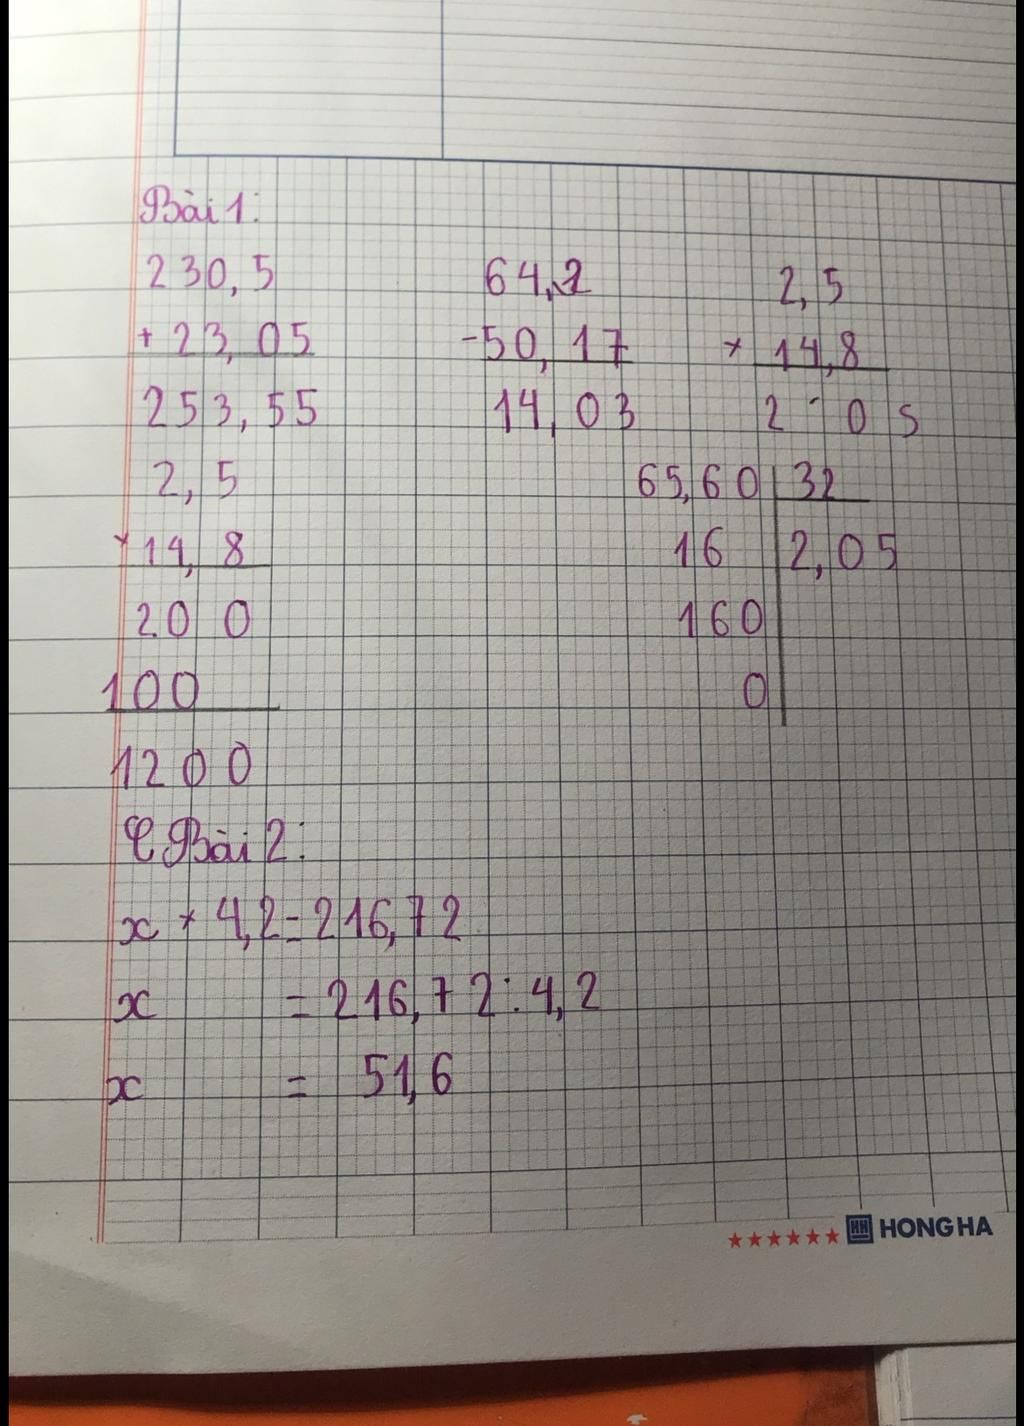 Bài 1:
230,5 64,2 2,5
+ 23,05 -50,17 × 14,8
253,55 14,03 2 0 5
2,5 65,60 32
× 14,8 16 2,05
200 160
100 0
1200
Bài 2:
x × 4,2 = 216,72
x = 216,72 : 4,2
x = 51,6
HONG HA